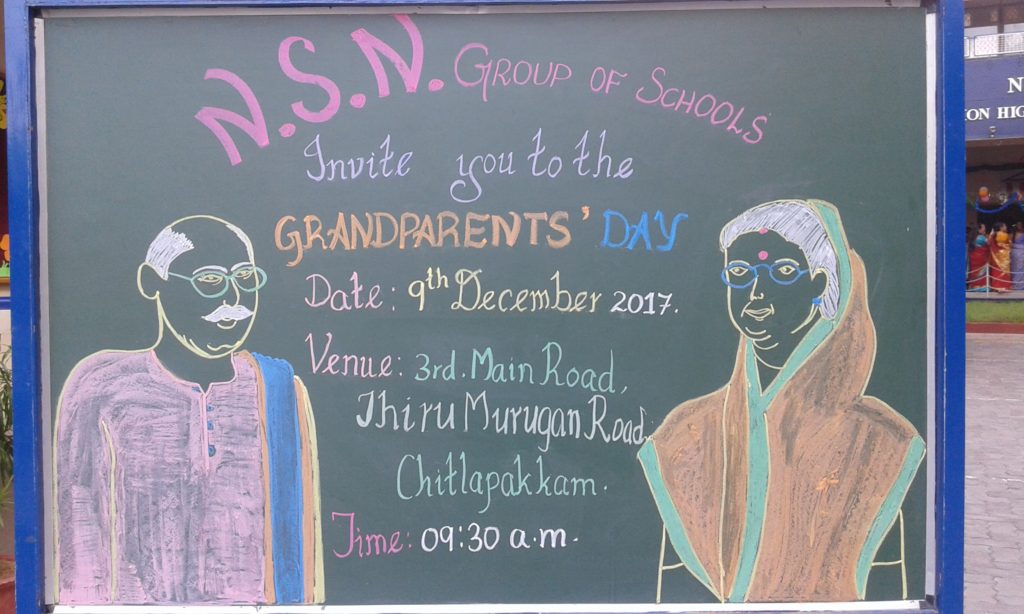 N.S.N. GROUP OF SCHOOLS
Invite you to the
GRANDPARENTS' DAY
Date: 9th December 2017.
Venue: 3rd. Main Road,
Thiru Murugan Road,
Chitlapakkam.
Time: 09:30 a.m.
N
ION HIG